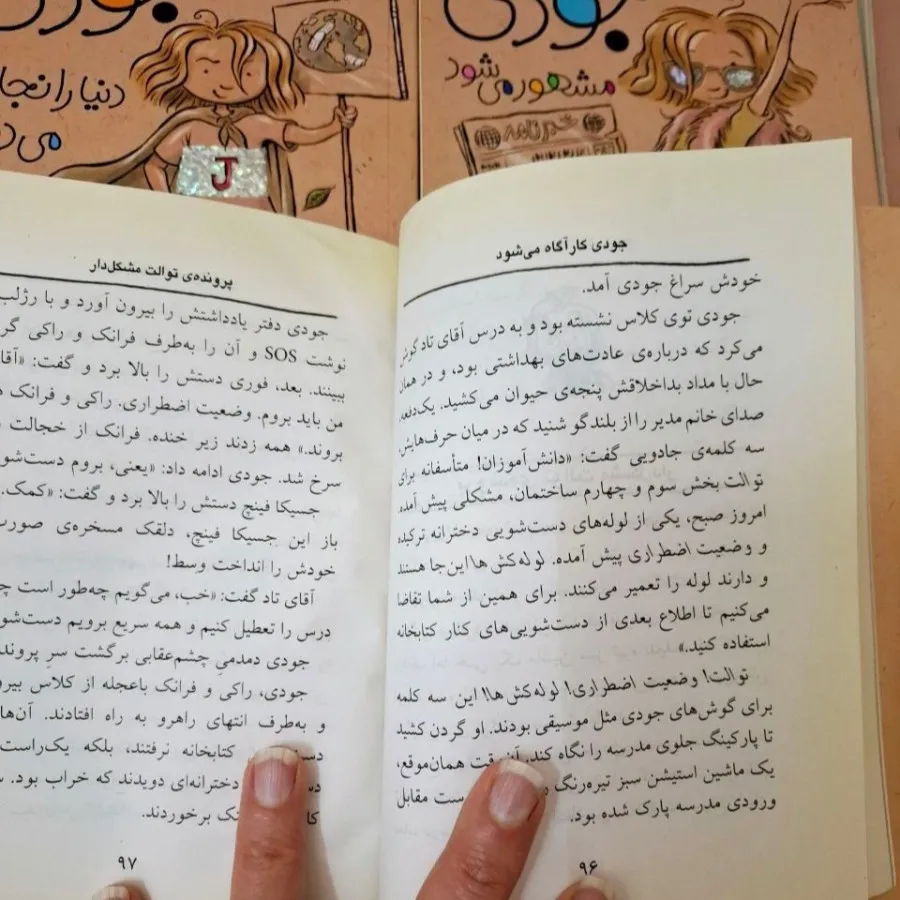 جودی
دنیا را نجا
می‌د
جودی
مشهور می‌شود
خبرنامه
J
جودی کارآگاه می‌شود
خودش سراغ جودی آمد.
جودی توی کلاس نشسته بود و به درس آقای تاد گوش
می‌کرد که درباره‌ی عادت‌های بهداشتی بود، و در همان
حال با مداد بداخلاقش پنجه‌ی حیوان می‌کشید. یک‌دفعه،
صدای خانم مدیر را از بلندگو شنید که در میان حرف‌هایش،
سه کلمه‌ی جادویی گفت: «دانش‌آموزان! متأسفانه برای
توالت بخش سوم و چهارم ساختمان، مشکلی پیش آمده.
امروز صبح، یکی از لوله‌های دست‌شویی دخترانه ترکیده
و وضعیت اضطراری پیش آمده. لوله‌کش‌ها این‌جا هستند
و دارند لوله را تعمیر می‌کنند. برای همین از شما تقاضا
می‌کنیم تا اطلاع بعدی از دست‌شویی‌های کنار کتابخانه
استفاده کنید.»
توالت! وضعیت اضطراری! لوله‌کش‌ها! این سه کلمه
برای گوش‌های جودی مثل موسیقی بودند. او گردن کشید
تا پارکینگ جلوی مدرسه را نگاه کند. آن‌وقت همان‌موقع،
یک ماشین استیشن سبز تیره‌رنگ ست مقابل
ورودی مدرسه پارک شده بود.
۹۶
پرونده‌ی توالت مشکل‌دار
جودی دفتر یادداشتش را بیرون آورد و با رژلب
نوشت SOS و آن را به‌طرف فرانک و راکی گر
ببینند. بعد، فوری دستش را بالا برد و گفت: «آقا
من باید بروم. وضعیت اضطراری. راکی و فرانک ه
بروند.» همه زدند زیر خنده. فرانک از خجالت
سرخ شد. جودی ادامه داد: «یعنی، بروم دست‌شو
جسیکا فینچ دستش را بالا برد و گفت: «کمک.
باز این جسیکا فینچ، دلقک مسخره‌ی صورت
خودش را انداخت وسط!
آقای تاد گفت: «خب، می‌گویم چه‌طور است چ
درس را تعطیل کنیم و همه سریع برویم دست‌شو
جودی دمدمیِ چشم‌عقابی برگشت سرِ پروند
جودی، راکی و فرانک باعجله از کلاس بیرو
و به‌طرف انتهای راهرو به راه افتادند. آن‌ها
دست کتابخانه نرفتند، بلکه یک‌راست
دس دخترانه‌ای دویدند که خراب بود.
کا ک برخوردند.
۹۷